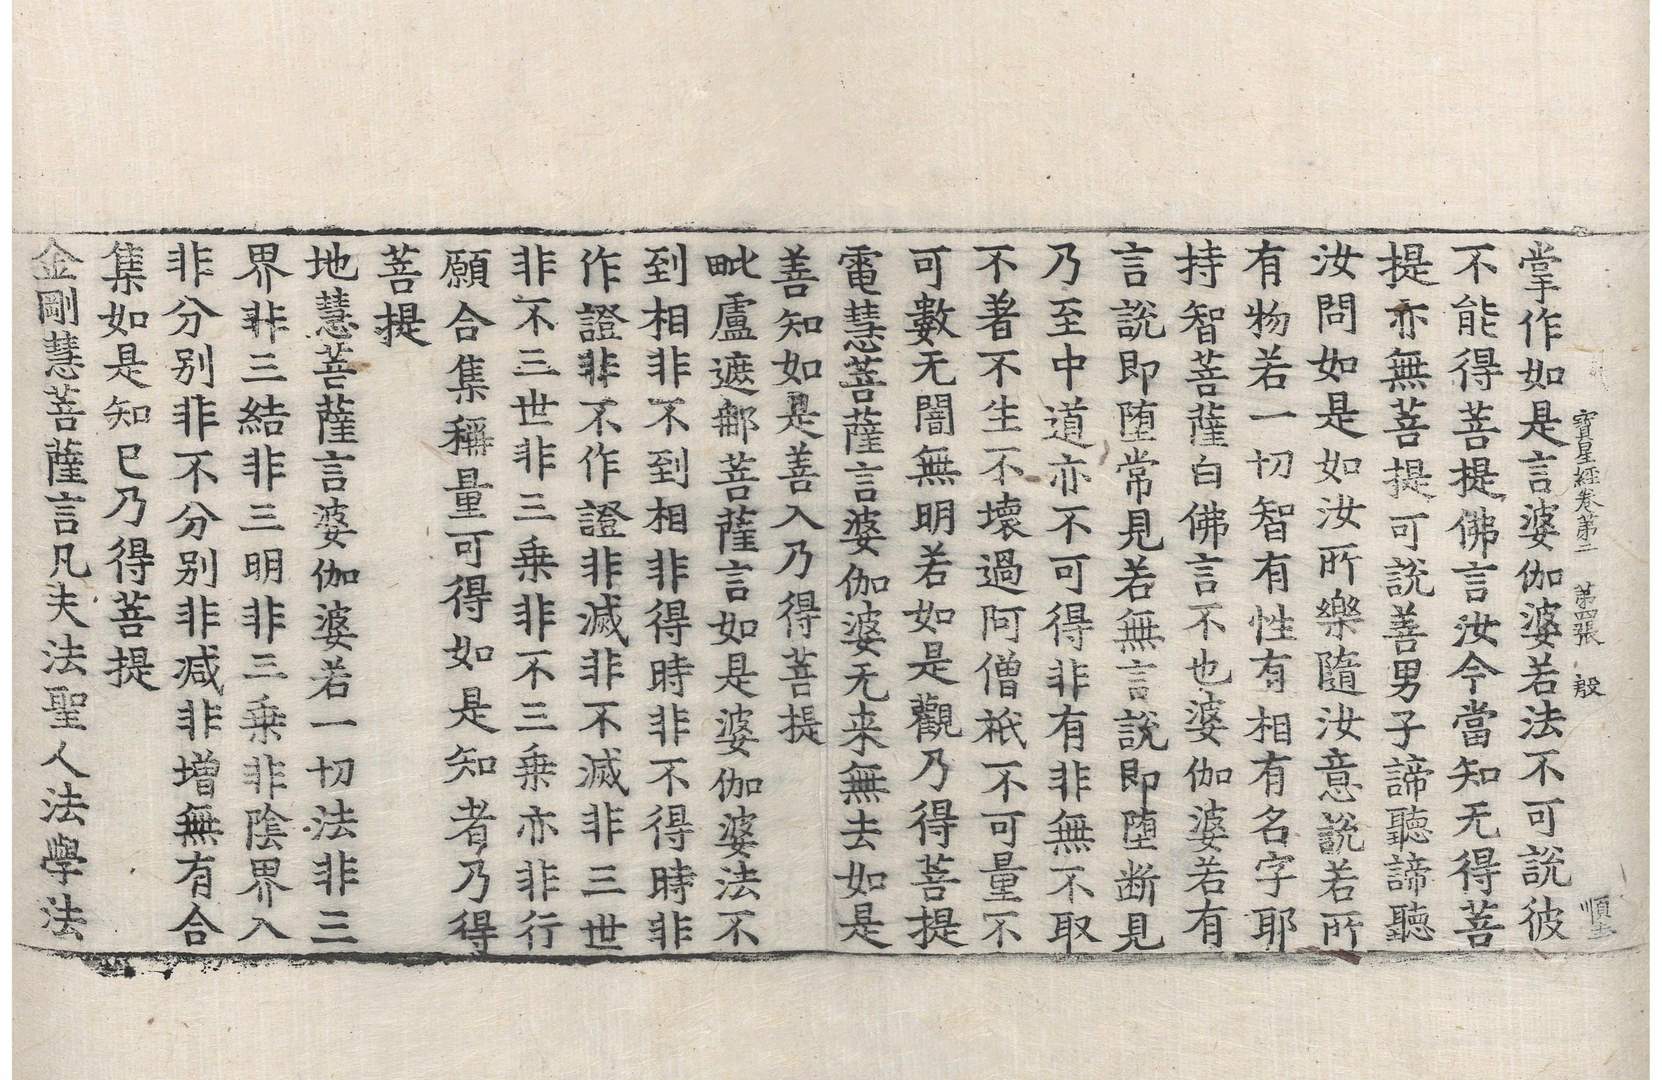 寳星經卷第二 第四張 殷
掌作如是言婆伽婆若法不可說彼
不能得菩提佛言汝今當知无得菩
提亦無菩提可說善男子諦聽諦聽
汝問如是如汝所樂隨汝意說若所
有物若一切智有性有相有名字耶
持智菩薩白佛言不也婆伽婆若有
言說即堕常見若無言說即堕断見
乃至中道亦不可得非有非無不取
不著不生不壞過阿僧祇不可量不
可數无闇無明若如是觀乃得菩提
電慧菩薩言婆伽婆无来無去如是
善知如是善入乃得菩提
毗盧遮那菩薩言如是婆伽婆法不
到相非不到相非得時非不得時非
作證非不作證非滅非不滅非三世
非不三世非三乗非不三乗亦非行
願合集稱量可得如是知者乃得
菩提
地慧菩薩言婆伽婆若一切法非三
界非三結非三明非三乗非陰界入
非分别非不分别非减非増無有合
集如是知已乃得菩提
金剛慧菩薩言凡夫法聖人法學法